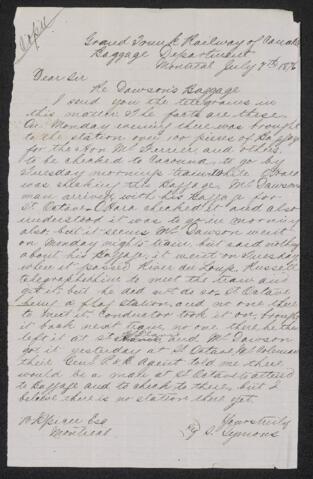 Copied
Grand Trunk Railway of Canada
Baggage Department
Montreal July 7th 18
Dear Sir
Re Dawson's Baggage
I send you the telegrams in
this matter. The facts are these
On Monday evening there was brought
to the station over 100 pieces of Baggage
for the Hon Mr Ferrier and others
to be checked to Cacouna to go by
Tuesday mornings train while
was checking this Baggage Mr Dawson
man arrived with his Baggage for
St Octave checked it and also
understood it was to go in morning
also, but it seems Mr Dawson went
on Monday nights train, but said nothing
about his Baggage, it went on Tuesday
when it passed River du Loup. Russell
telegraphed him to meet the train and
get it, but he did not do so. St Octave
being a flag station, and no one there
to meet it. Conductor took it on, brought
it back next train no one there he then
left it at St Flavie and Mr Dawson
got it yesterday at St Octave. Mr Coleman
their Genl Agent told me there
would be a man at St Octave to attend
to Baggage and to check to there, but I
believe there is no station there yet.
Spicer Esq
Montreal
Yours truly
Symons